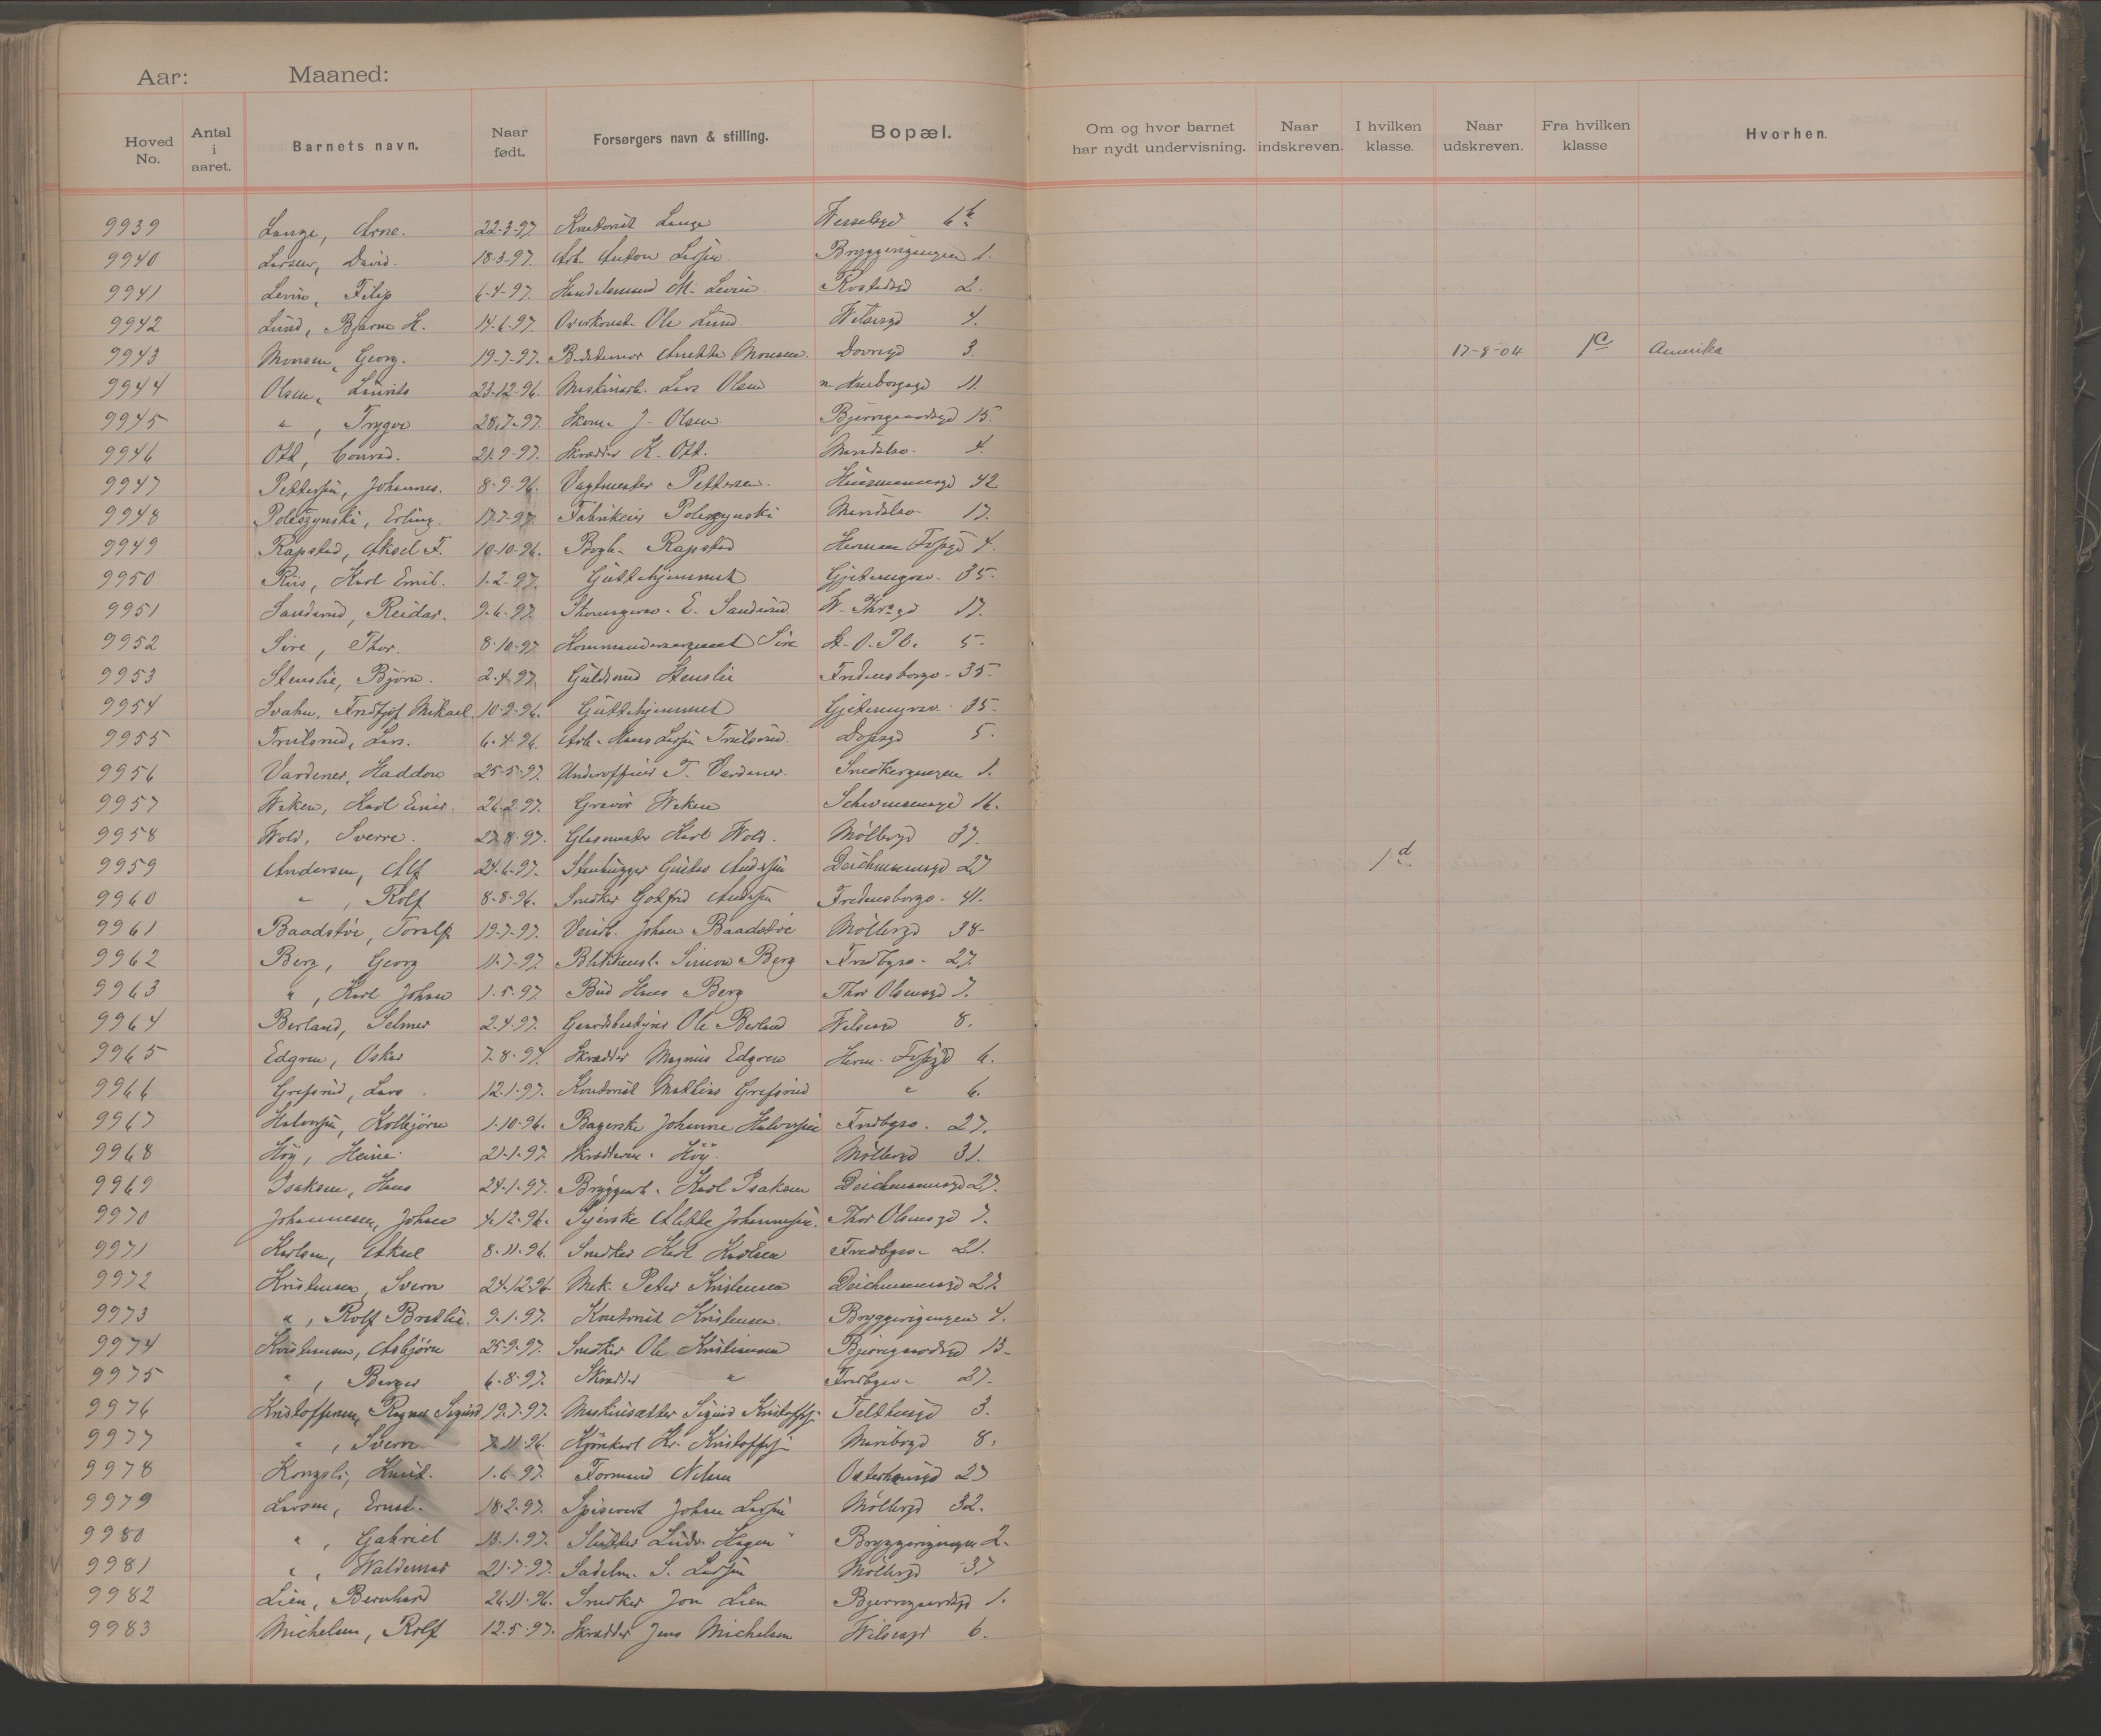 Aar: Maaned:
Hoved No. Antal i aaret. Barnets navn. Naar født. Forsørgers navn & stilling. Bopæl. Om og hvor barnet har nydt undervisning. Naar indskreven. I hvilken klasse. Naar udskreven. Fra hvilken klasse Hvorhen.
9939 Lange, Arne. 22-3-97. Kontorist Lange Wesselsgd 6
9940 Larsen, David. 18-3-97. Arb. Anton Larsen Bryggerigangen 1.
9941 Levin, Filip 6-4-97. Handelsmand M. Levin. 2.
9942 Lund, Bjarne H. 14.6.97. Overkonst. Ole Lund. Wilsesgd 4.
9943 Monsen, Georg. 19-7-97. Monsen. Dovregd 3. 17-9-04 1c Amerika
9944 Olsen, Lauritz 23-12-96. Maskinarb. Lars Olsen 11.
9945 " , Trygve 28.7-97. Skom. J. Olsen. Bjerregaardsgd 15.
9946 Ott, Conrad. 21.9-97. Skrædder K. Ott. 4.
9947 Pettersen, Johannes. 8-9-96. Vagtmester Pettersen. Huusmannsgd 42
9948 Poleszynski, Erling. 17-7-97 Fabrikeier Poleszynski 17.
9949 Rapstad, Aksel F. 10-10-96. Bogh. Rapstad Herman Fossgd 4.
9950 Riis, Karl Emil. 1-2-97. Guttehjemmet Gjetemyrsv. 35.
9951 Sandsrud, Reidar. 9-6-97. E. Sandsrud W. Thrsgd 17.
9952 Sire, Thor. 8-10-97 Kommandersergeant Sire St. O. Pl. 5.
9953 Stenslie, Bjørn. 2-4-97. Guldsmed Stenslie Fredensborgv. 35.
9954 Svahn, Fridtjof Mikael. 10-9-96. Guttehjemmet Gjetemyrsv. 35.
9955 Trulsrud, Lars. 6-4-96. Arb. Hans Larsen Trulsrud. Dopsgd 5.
9956 Vardener, Haddon 25-5-97. Underofficer T. Vardener. Snedkergangen 1.
9957 Wiken, Karl Einar. 26.2.97. Gravör Wiken Schwensensgd 16.
9958 Wold, Sverre. 27.8.97. Glasmester Karl Wold. Möllergd 37.
9959 Andersen, Alf 24-6-97. Stenhugger Gustav Andersen Deichmannsgd 27 1d
9960 " , Rolf 8-8-96. Snedker Gotfred Andersen Fredensborgv. 41.
9961 Baadstöe, Toralf 19-7-97. Johan Baadstöe Möllergd 38.
9962 Berg, Georg 11-7-97. Blikkensl. Simon Berg Fredbgsv. 27.
9963 " , Karl Johan 1.5.97. Bud Hans Berg Thor Olsensgd 7.
9964 Berland, Selmer 2.4.97. Gaardsbestyrer Ole Berland Wilsesgd 8.
9965 Edgren, Oskar 7.8.97. Skrædder Magnus Edgren Herm. Fossgd 6.
9966 Grefsrud, Lars 12.1.97. Kontorist Mathias Grefsrud " 6.
9967 Halvorsen, Kolbjörn 1-10-96. Bagerske Johanne Halvorsen Fredbgsv. 27.
9968 Höy, Heine. 21-1-97. Höy. Möllergd 31.
9969 Isaksen, Hans 24-1-97. Bryggearb. Karl Isaksen Deichmannsgd 27.
9970 Johannesen, Johan 4.12.96. Syerske Johannesen. Thor Olsensgd 7.
9971 Karlsen, Aksel 8.11.96. Snedker Karl Karlsen Fredbgsv. 21.
9972 Kristensen, Sverre 24.12.96. Mek. Peter Kristensen Deichmannsgd 27.
9973 " , Rolf Bratlie. 9.1.97. Kontorist Kristensen. Bryggerigangen 4.
9974 Kristiansen, Asbjörn 25.9.97. Snedker Ole Kristiansen Bjerregaardsgd 13.
9975 " , Berger 6.8.97. Skrædder " Fredbgsv. 27.
9976 Kristoffersen, Ragnar Sigurd 19.7.97. Maskinsætter Sigurd Kristoffersen Telthusgd 3.
9977 " , Sverre 7.11.96. Kjörekarl Kr. Kristoffersen Maribogd 8.
9978 Kongsli, Knut. 1.6.97. Formand Nilsen Osterhausgd 27
9979 Larsen, Ernst. 18.2.97. Spisevert Johan Larsen Möllergd 32.
9980 " , Gabriel 13.1.97. Ludv. Hagen Bryggerigangen 2.
9981 " , Waldemar 21.7.97. Sadelm. S. Larsen Möllergd 37
9982 Lien, Bernhard 26.11.96. Snedker Jon Lien Bjerregaardsgd 1.
9983 Michelsen, Rolf 12.5.97. Skrædder Jens Michelsen Wilsesgd 6.